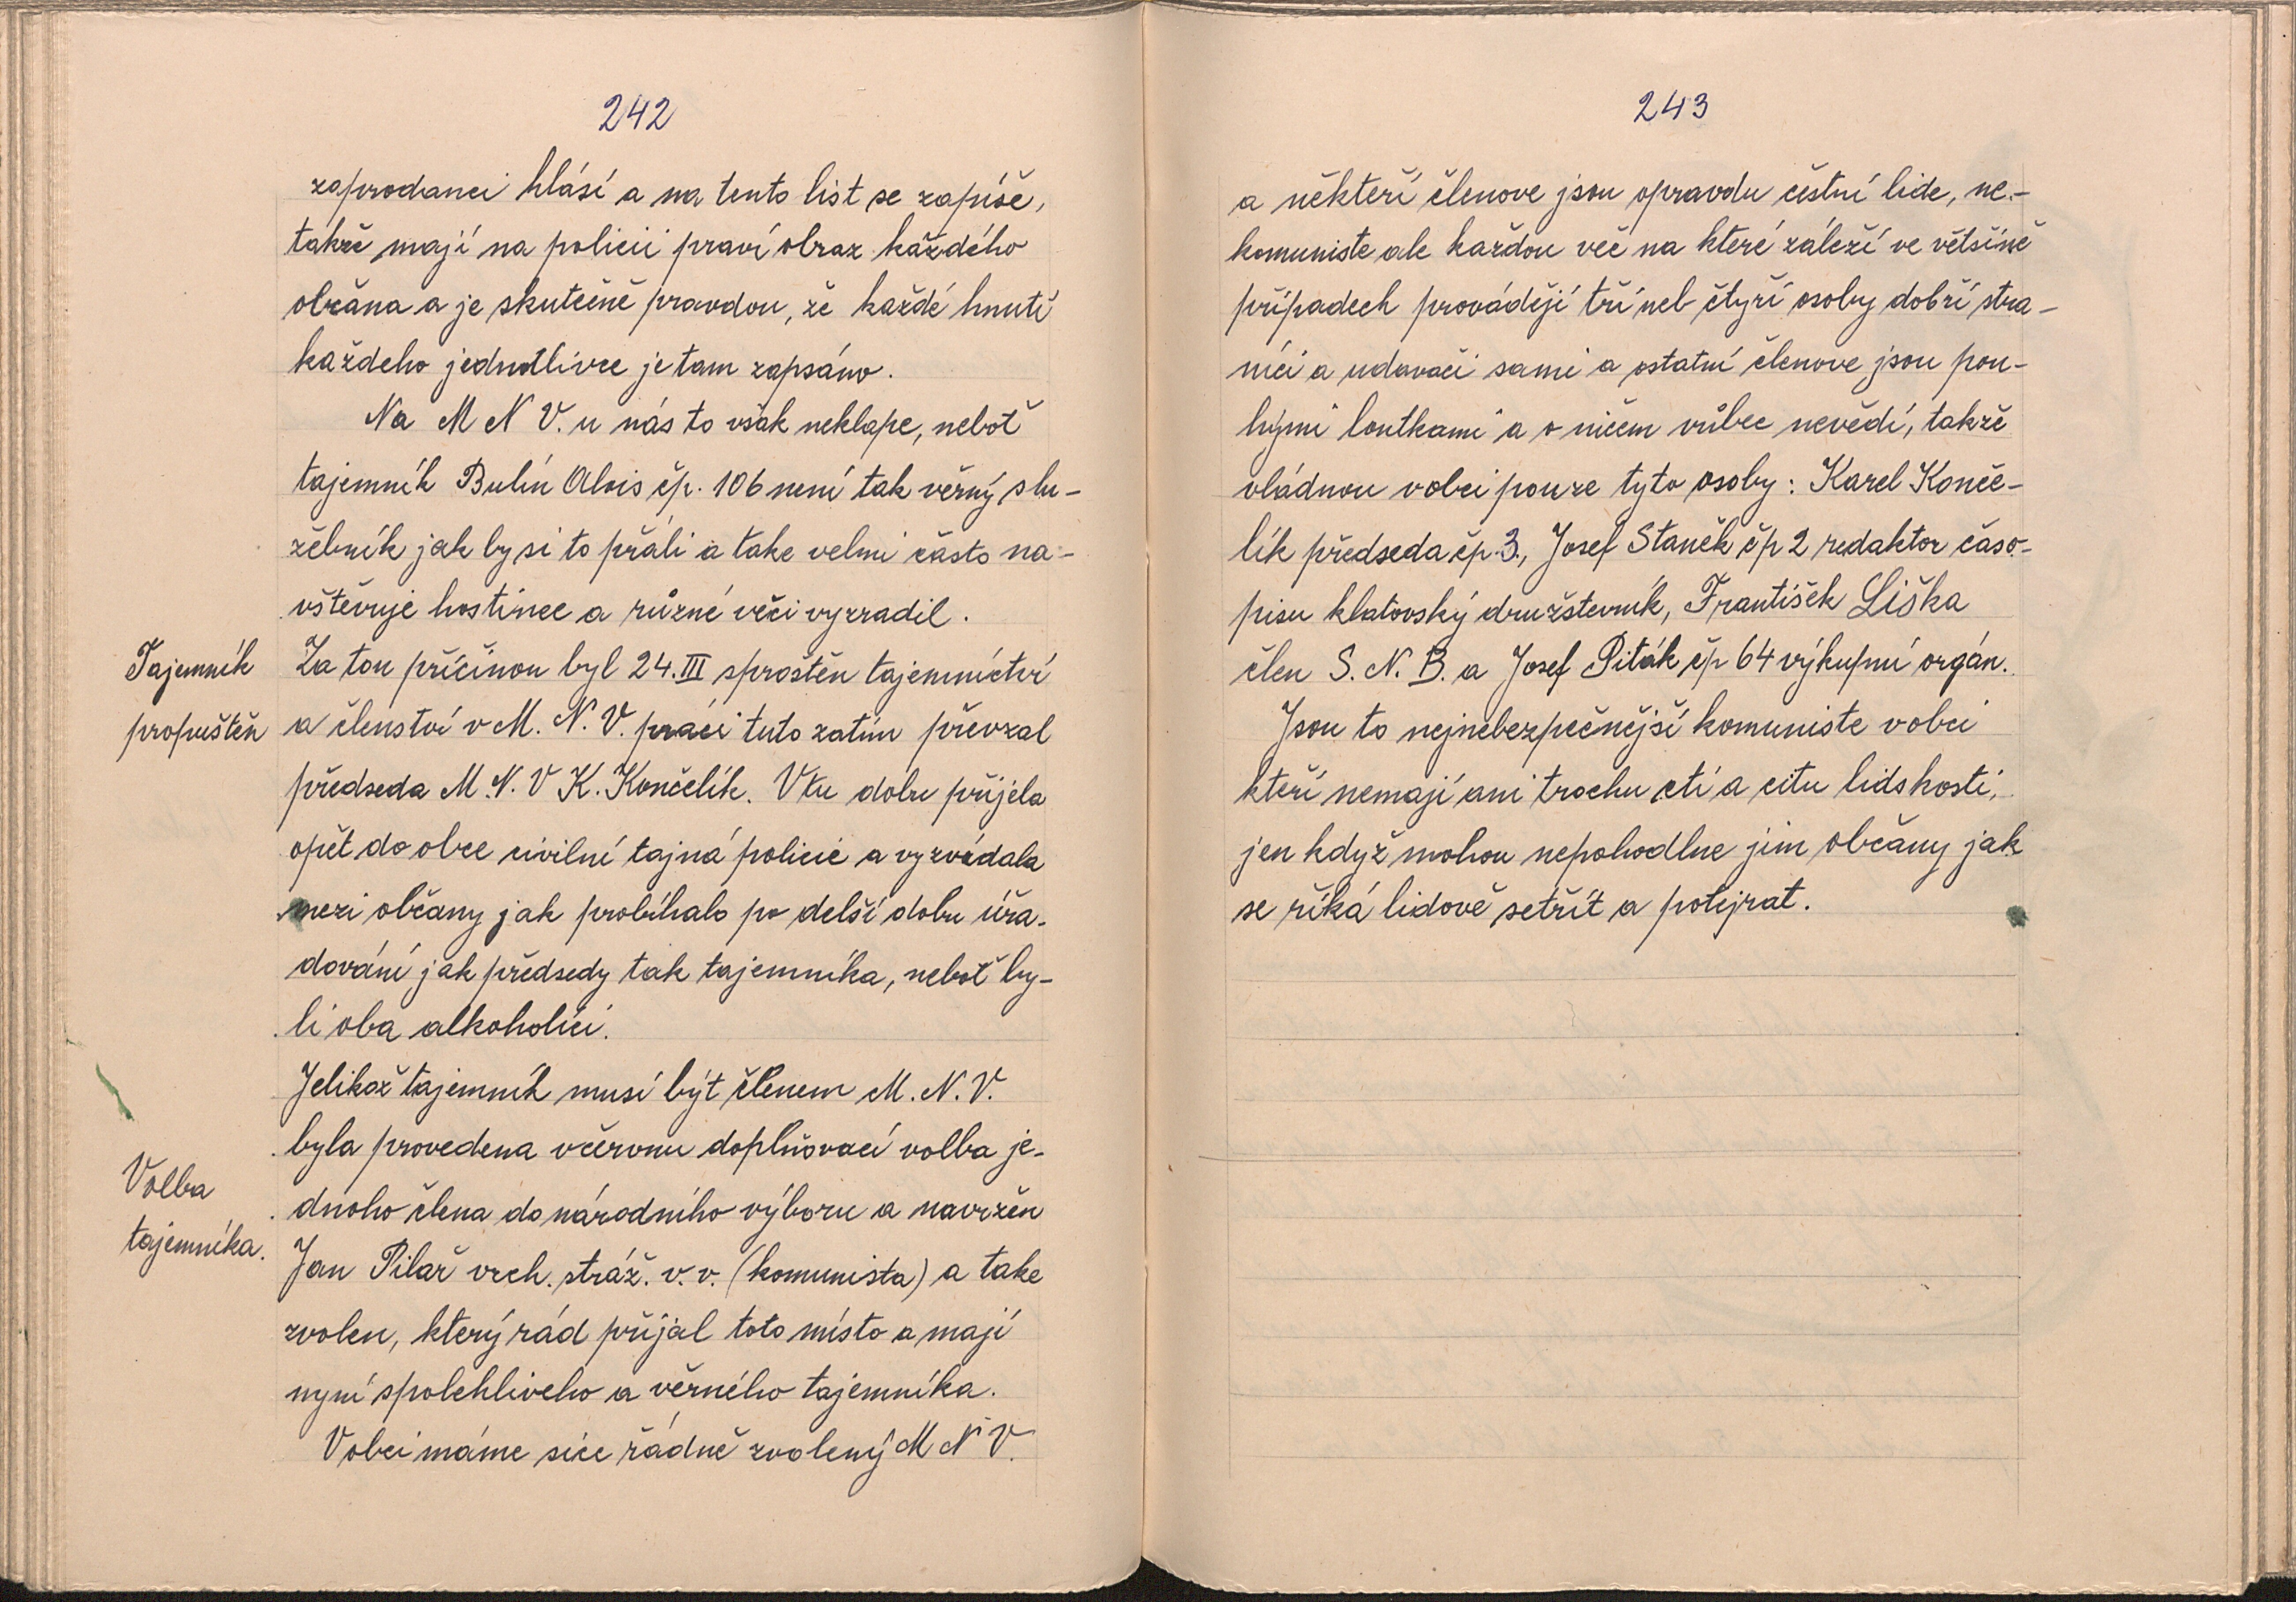 242
zaprodanci hlásí a na tento list se zapíše,
takže mají na policii praví obraz každého
občana a je skutečně pravdou, že každé hnutí
každeho jednotlivce je tam zapsáno.
Na M N V. u nás to však neklape, neboť
tajemník Bulín Alois čp. 106 není tak věrný slu-
žebník jak by si to přáli a take velmi často na-
vštěvuje hostince a různé věci vyzradil.
Tajemník
propuštěn
Za tou příčinou byl 24. III sproštěn tajemnictví
a členství v M. N. V. práci tuto zatím převzal
předseda M. N. V K. Končelík. V tu dobu přijela
opět do obce civilní tajná policie a vyzvídala
mezi občany jak probíhalo po delší dobu úřa-
dování jak předsedy tak tajemníka, neboť by-
li oba alkoholici.
Jelikož tajemník musí být členem M. N. V.
byla provedena v červnu doplňovací volba je-
Volba
tajemníka.
dnoho člena do národního výboru a navržen
Jan Pilař vrch. stráž. v. v. (komunista) a take
zvolen, který rád přijal toto místo a mají
nyní spolehliveho a věrného tajemníka.
V obci máme sice řádně zvolený M N V.
243
a někteří členove jsou opravdu čéstní lide, ne-
komuniste ale každou věc na které záleží ve většině
případech provádějí tří neb čtyří osoby dobří stra-
níci a udavači sami a ostatní členove jsou pou-
hými loutkami a o ničem vůbec nevědí, takže
vládnou v obci pouze tyto osoby: Karel Konče-
lík předseda čp. 3., Josef Staněk čp 2 redaktor časo-
pisu klatovský družstevník, František Liška
člen S. N. B. a Josef Piták čp 64 výkupní orgán.
Jsou to nejnebezpečnější komuniste v obci
kteří nemají ani trochu cti a citu lidskosti,
jen když mohou nepohodlne jim občany jak
se říká lidově setřít a potejrat.